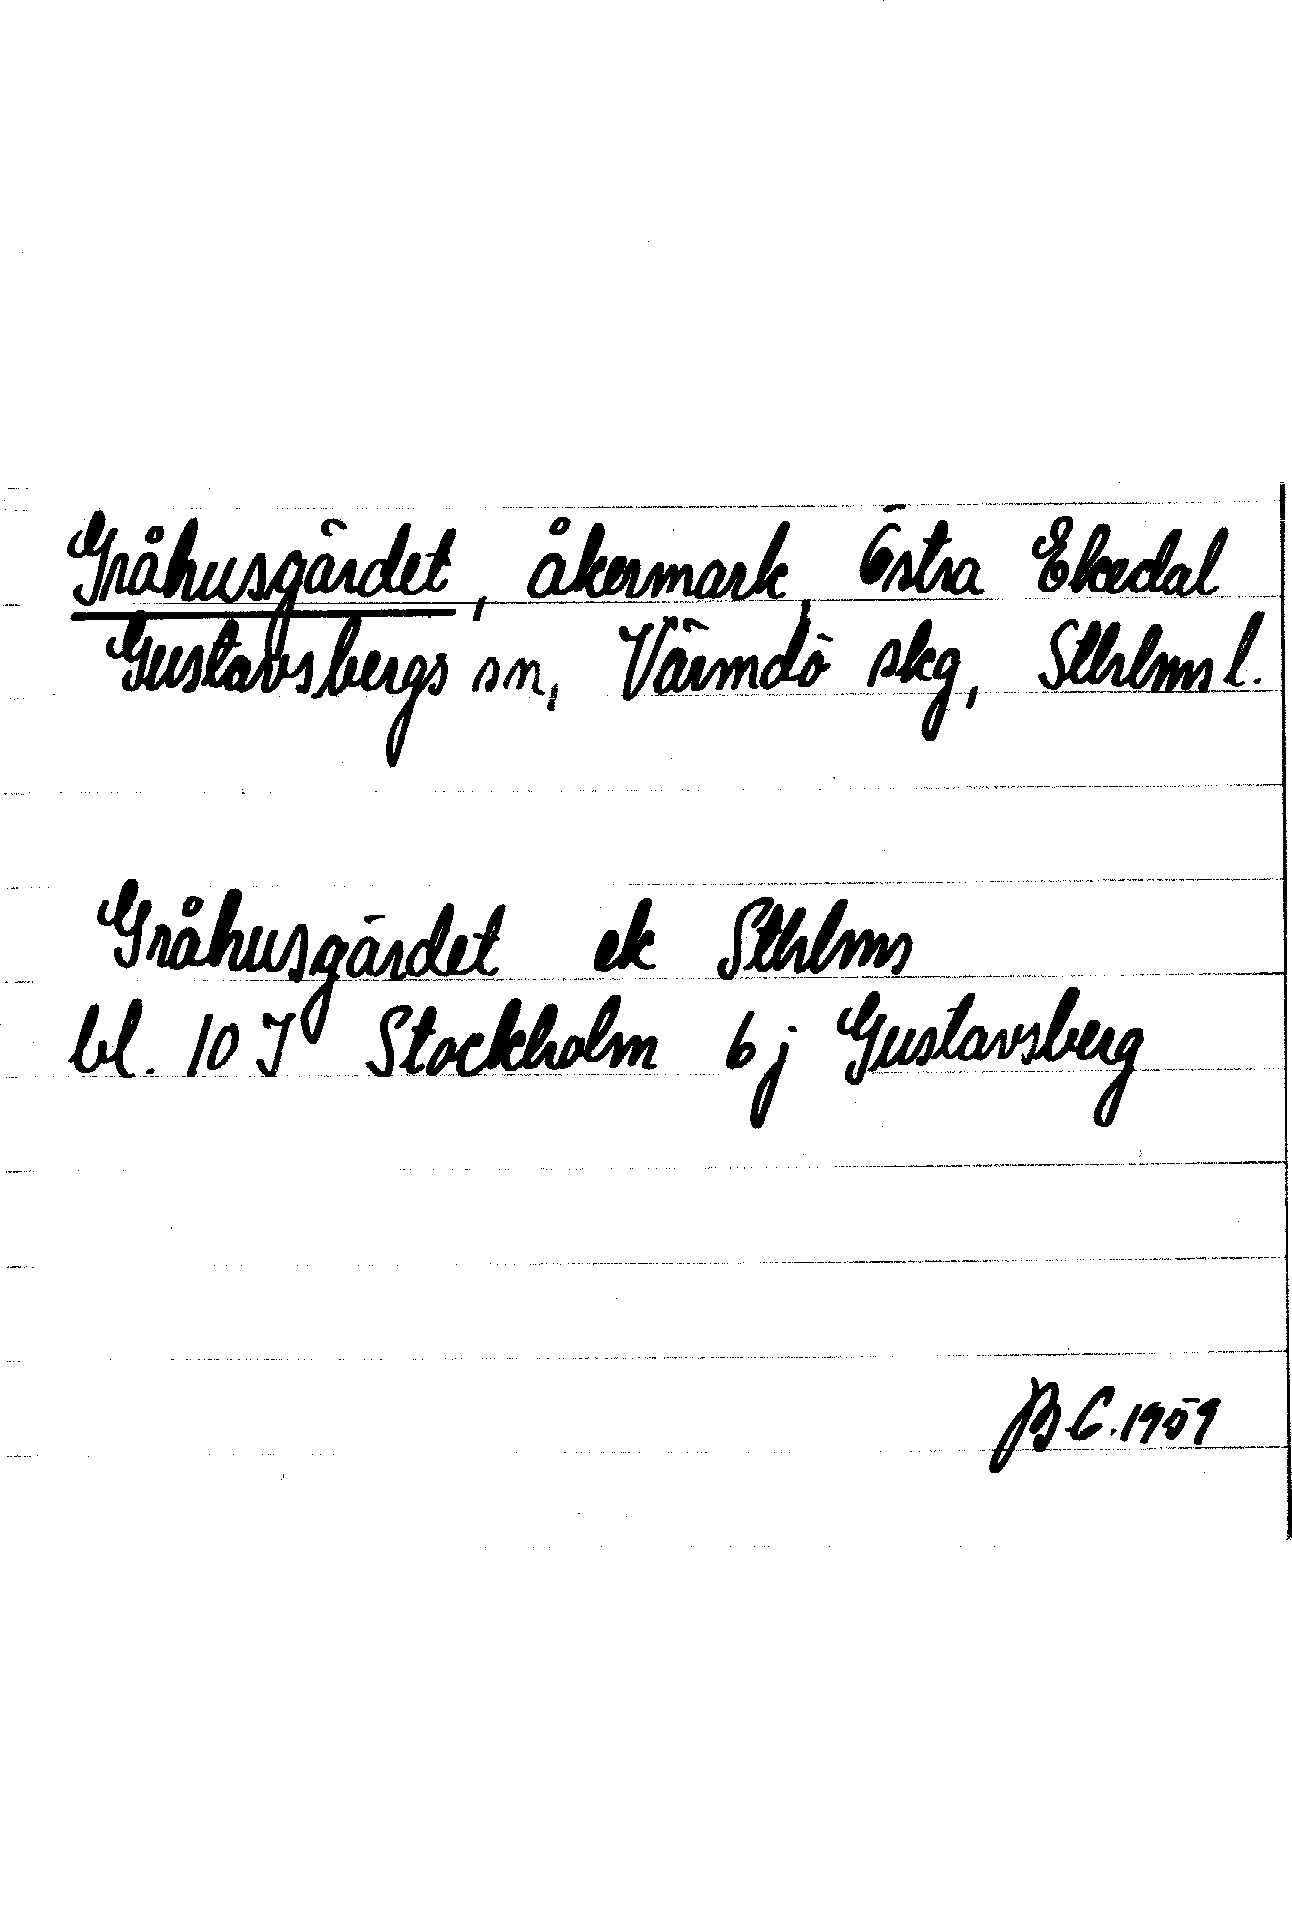 Gråhusgärdet, åkermark, Östra Ekedal
Gustavsbergs sn, Värmdö skg, Sthlms l.
Gråhusgärdet ek Sthlms
bl. 10 I Stockholm 6 j Gustavsberg
B C. 1959